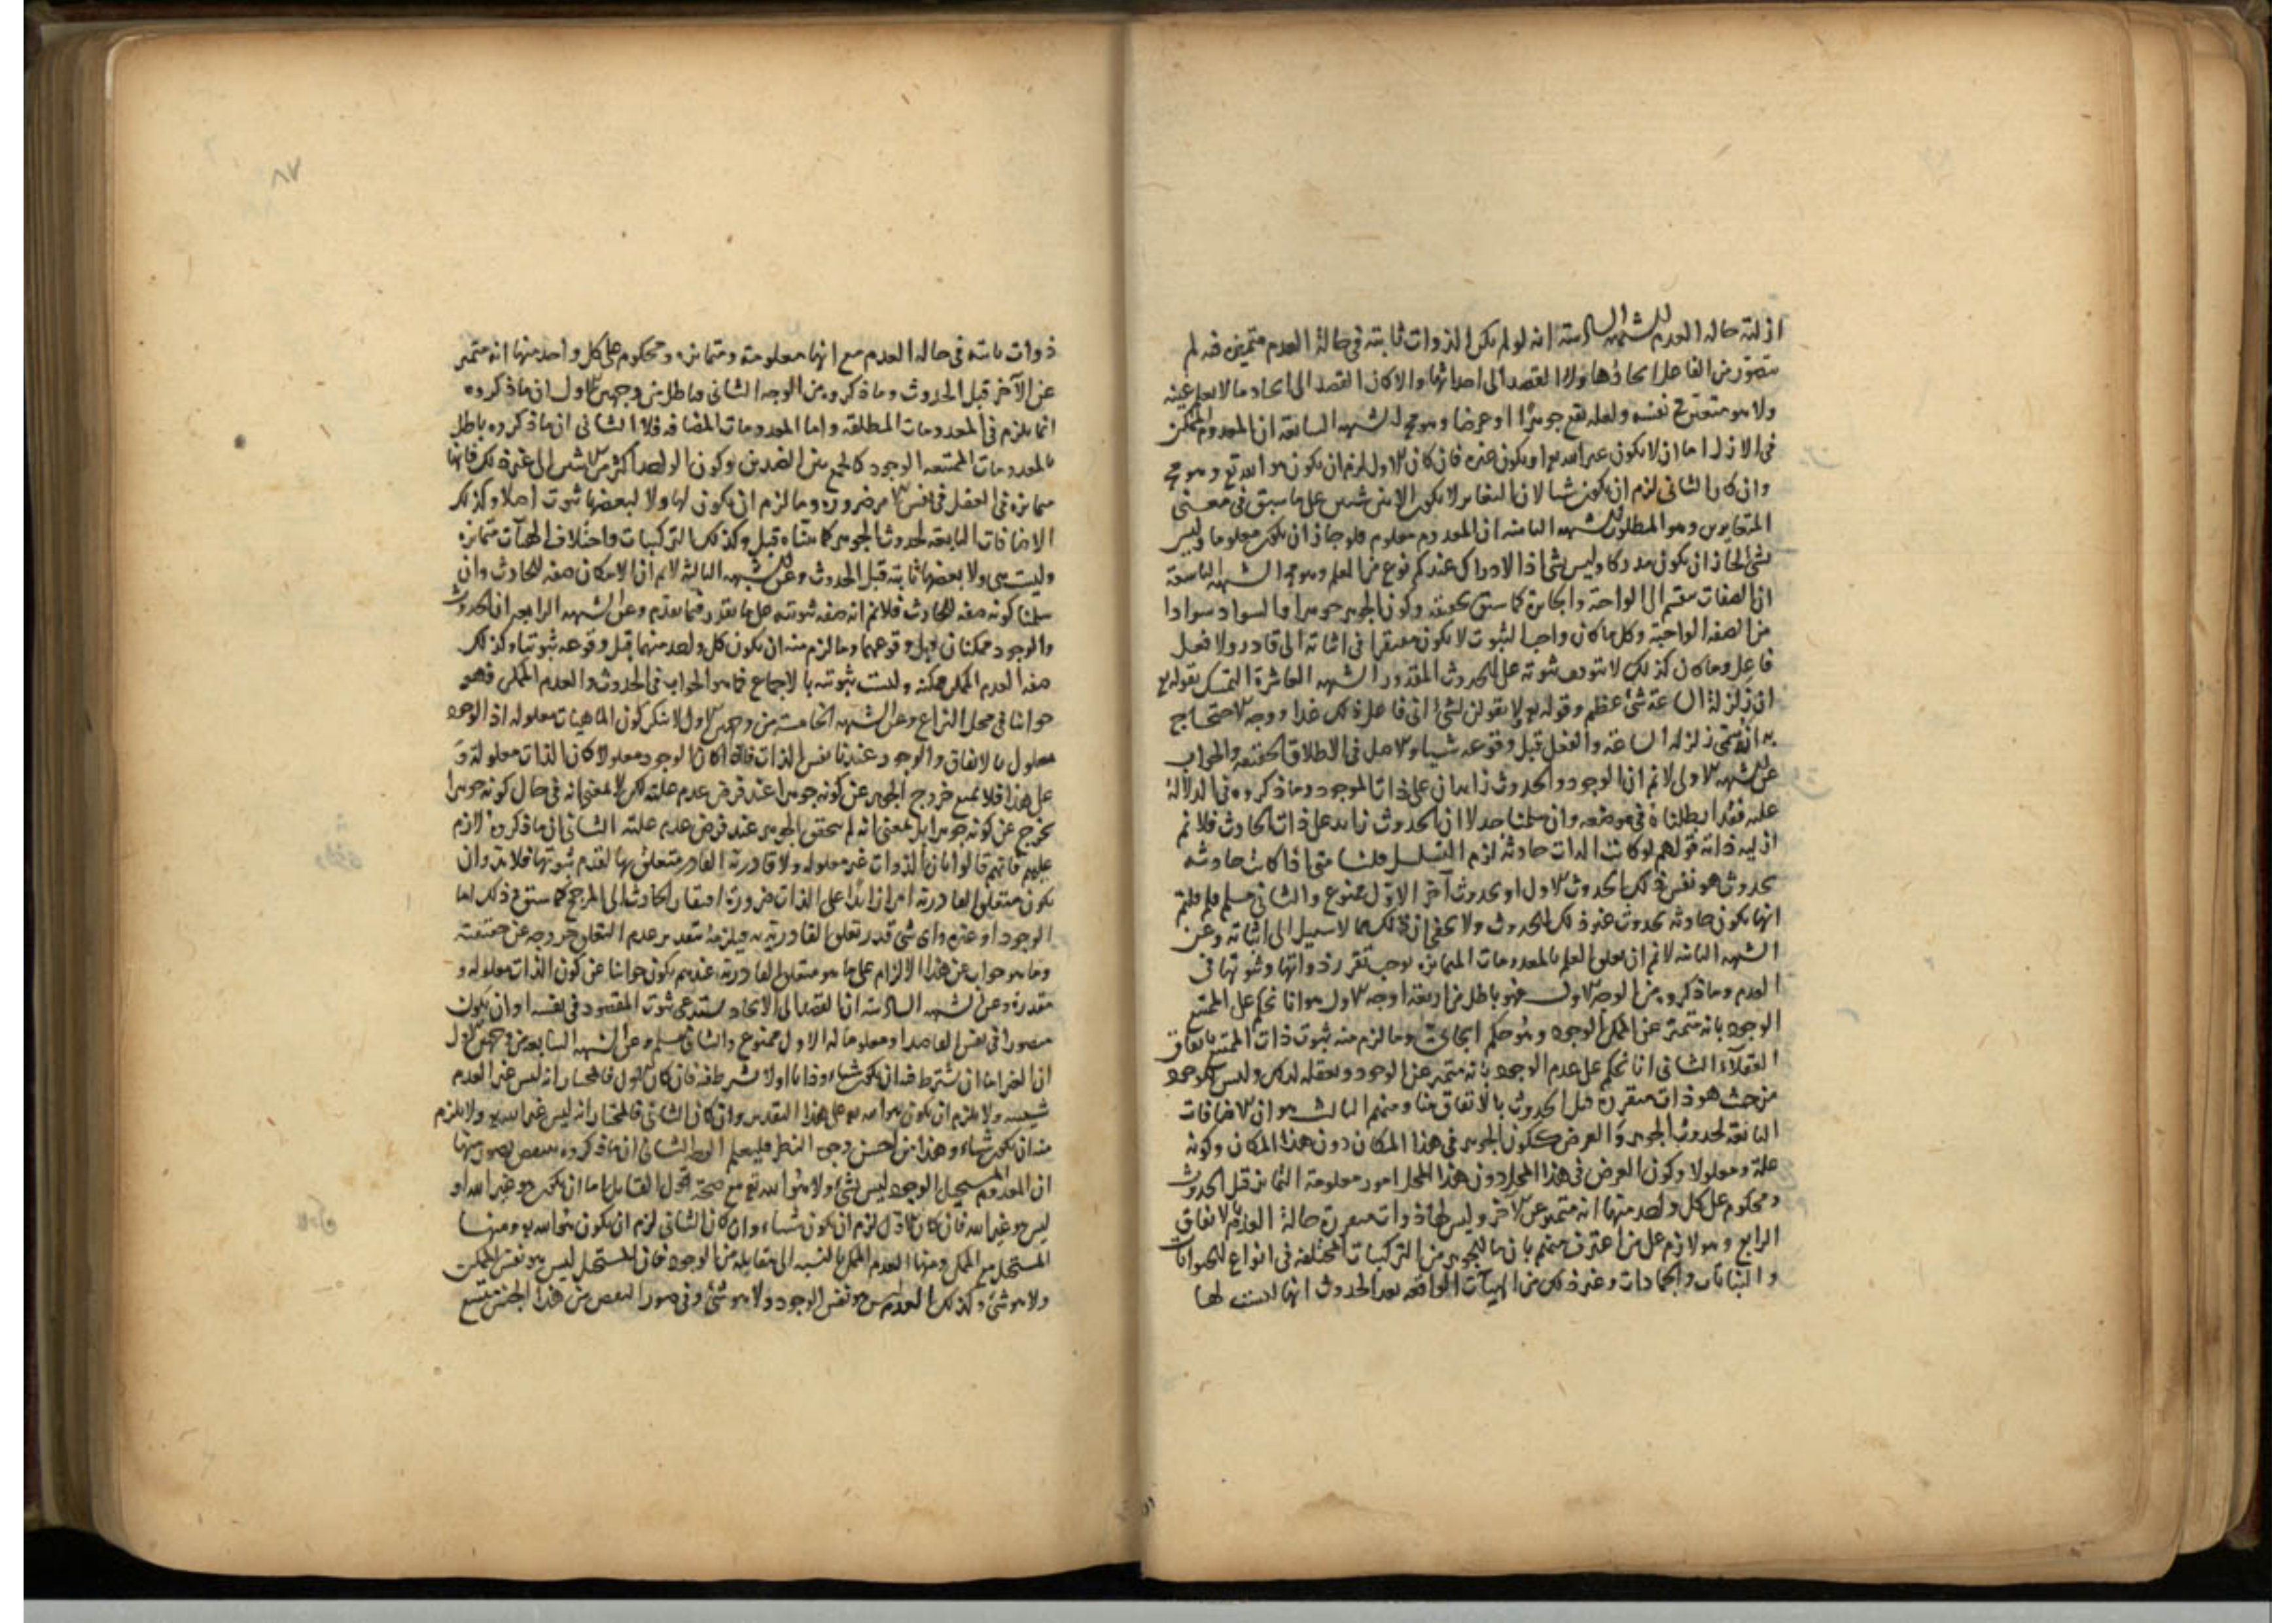 ازلية حالة العدم الشبهة السادسة انه لو لم يكن الذوات ثابتة في حالة العدم متميزة فيه لم
يتصور من الفاعل ايجادها ولا القصد الى احداثها والا كان القصد الى ايجاد ما لا يعلم عينه
ولا هو متعين في نفسه ولعله يقع جوهرا او عرضا وهو محال الشبهة السابعة ان المعدوم الممكن
في الازل اما ان لا يكون غير الله تع او يكون غيره فان كان الاول لزم ان يكون هو الله تع وهو مح
وان كان الثاني لزم ان يكون شيا لان التغاير لا يكون الا بين شيين على ما سبق في معنى
المتغايرين وهو المطلوب الشبهة الثامنة ان المعدوم معلوم فلو جاز ان يكون معلوما وليس
بشي لجاز ان يكون مدركا وليس بشي اذ الادراك عندكم نوع من العلم وهو مح الشبهة التاسعة
ان الصفات منقسم الى الواجبة والجائزة كما سبق تحقيقه وكون الجوهر جوهرا والسواد سوادا
من الصفة الواجبة وكل ما كان واجب الثبوت لا يكون مفتقرا في اثباته الى قادر ولا فعل
فاعل وما كان كذلك لا يتوقف ثبوته على الحدوث المقدور الشبهة العاشرة التمسك بقوله تع
ان زلزلة الساعة شئ عظيم وقوله تع ولا تقولن لشئ اني فاعل ذلك غدا ووجه الاحتجاج
به انه سمى زلزلة الساعة والفعل قبل وقوعه شيا والاصل في الاطلاق الحقيقة والجواب
عن الشبهة الاولى لانم ان الوجود والحدوث زايدان على ذات الموجود وما ذكروه في الدلالة
عليه فقد ابطلناه في موضعه وان سلمنا جدلا ان الحدوث زايد على ذات الحادث فلانم
ازلية ذاته قولهم لو كانت الذات حادثة لزم التسلسل قلنا متى اذا كانت حادثة
بحدوث هو نفس ذلك الحدوث الاول او بحدوث آخر الاول ممنوع والثاني مسلم فلم قلتم
انها يكون حادثة بحدوث غير ذلك الحدوث ولا يخفى ان ذلك مما لا سبيل الى اثباته وعن
الشبهة الثانية لانم ان تعلق العلم بالمعدومات المتمايزة يوجب تقرر ذواتها وثبوتها في
العدم وما ذكروه من الوجه الاول فهو باطل من اربعة اوجه الاول هو انا نحكم على الممتنع
الوجود بانه متميز عن الممكن الوجود وهو حكم ايجابي وما لزم منه ثبوت ذات الممتنع باتفاق
العقلاء الثاني انا نحكم على عدم الوجود بانه متميز عن الوجود وتعقله لذلك وليس للوجود
من حيث هو ذات متقررة قبل الحدوث بالاتفاق منا ومنهم الثالث هو ان الاضافات
التابعة لحدوث الجوهر والعرض ككون الجوهر في هذا المكان دون هذا المكان وكونه
علة ومعلولا وكون العرض في هذا المحل دون هذا المحل امور معلومة التمايز قبل الحدوث
ومحكوم على كل واحد منها انه متميز عن الاخر وليس لها ذوات متقررة حالة العدم بالاتفاق
الرابع وهو لازم على من اعترف منهم بان ما للجوهر من التركيبات المختلفة في انواع الحيوانات
والنباتات والجمادات وغير ذلك من الهيآت الواقعة بعد الحدوث انها ليست لها
٨٧
ذوات ثابتة في حالة العدم مع انها معلومة ومتمايزة ومحكوم على كل واحد منها انه متميز
عن الآخر قبل الحدوث وما ذكروه من الوجه الثاني فباطل من وجهين الاول ان ما ذكروه
انما يلزم في المعدومات المطلقة واما المعدومات المضافة فلا الثاني ان ما ذكروه باطل
بالمعدومات الممتنعة الوجود كالجمع بين الضدين وكون الواحد اكثر من الاثنين الى غير ذلك فانها
متمايزة في العقل في نفس الامر ضرورة وما لزم ان يكون لها ولا لبعضها ثبوت اصلا وكذلك
الاضافات التابعة لحدوث الجوهر كما بيناه قبل وكذلك التركيبات واختلاف الهيآت متمايزة
وليست هي ولا بعضها ثابتة قبل الحدوث وعن الشبهة الثالثة لانم ان الامكان صفة للحادث وان
سلمنا كونه صفة للحادث فلانم انه صفة ثبوتية على ما تقرر فيما تقدم وعن الشبهة الرابعة ان الحدوث
والوجود ممكنان قبل وقوعهما وما لزم منه ان يكون كل واحد منهما قبل وقوعه ثبوتيا وكذلك
صفة العدم الممكن ممكنة وليست ثبوتية بالاجماع فما هو الجواب في الحدوث والعدم الممكن فهو
جوابنا في محل النزاع وعن الشبهة الخامسة من وجهين الاول لا ننكر كون الماهيات معلولة اذ الوجود
معلول بالاتفاق والوجود عندنا نفس الذات فاذا كان الوجود معلولا كان الذات معلولة و
على هذا فلا نمنع خروج الجوهر عن كونه جوهرا عند فرض عدم علته لكن لا بمعنى انه في حال كونه جوهرا
يخرج عن كونه جوهرا بل بمعنى انه لم يتحقق الجوهر عند فرض عدم علته الثاني ان ما ذكروه لازم
عليهم فانهم قالوا بان الذوات غير معلولة ولا قادرية القادر متعلق بها لقدم ثبوتها فلا بد وان
يكون متعلق القادرية امرا زايدا على الذات ضرورة افتقار الحادث الى المرجح كما سبق وذلك اما
الوجود او غيره واي شئ قدر تعلق القادرية به فيلزمه بتقدير عدم التعلق خروجه عن حقيقته
وما هو جواب عن هذا الالزام على ما هو متعلق القادرية عندهم يكون جوابنا عن كون الذات معلولة و
مقدورة وعن الشبهة السادسة ان القصد الى الايجاد يستدعي ثبوت المقصود في نفسه او ان يكون
متصورا في نفس القاصد او معلوما له الاول ممنوع والثاني مسلم وعن الشبهة السابعة من وجهين الاول
ان الغير اما ان يشترط فيه ان يكون شيا وذاتا اولا يشترط فيه فان كان الاول فالمختار انه ليس غيرا لعدم
شيئيته ولا يلزم ان يكون هو الله تع على هذا التقدير وان كان الثاني فالمختار انه ليس غير الله تع ولا يلزم
منه ان يكون شيا وهذا من احسن وجوه النظر فليعلم الوجه الثاني ان ما ذكروه منتقض بصور منها
ان المعدوم المستحيل الوجود ليس بشئ ولا هو الله تع مع صحة قول القايل اما ان يكون هو غير الله او
ليس هو غير الله فان كان الاول لزم ان يكون شيا وان كان الثاني لزم ان يكون هو الله تع ومنها
المستحيل مع الممكن ومنها العدم الممكن بالنسبة الى مقابله من الوجود فان المستحيل ليس هو نفس الممكن
ولا هو شئ وكذلك العدم ليس هو نفس الوجود ولا هو شئ وفي صور النقض من هذا الجنس متسع